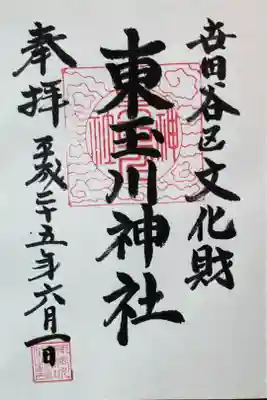 世田谷区文化財
東玉川神社
奉拝
平成二十五年六月一日